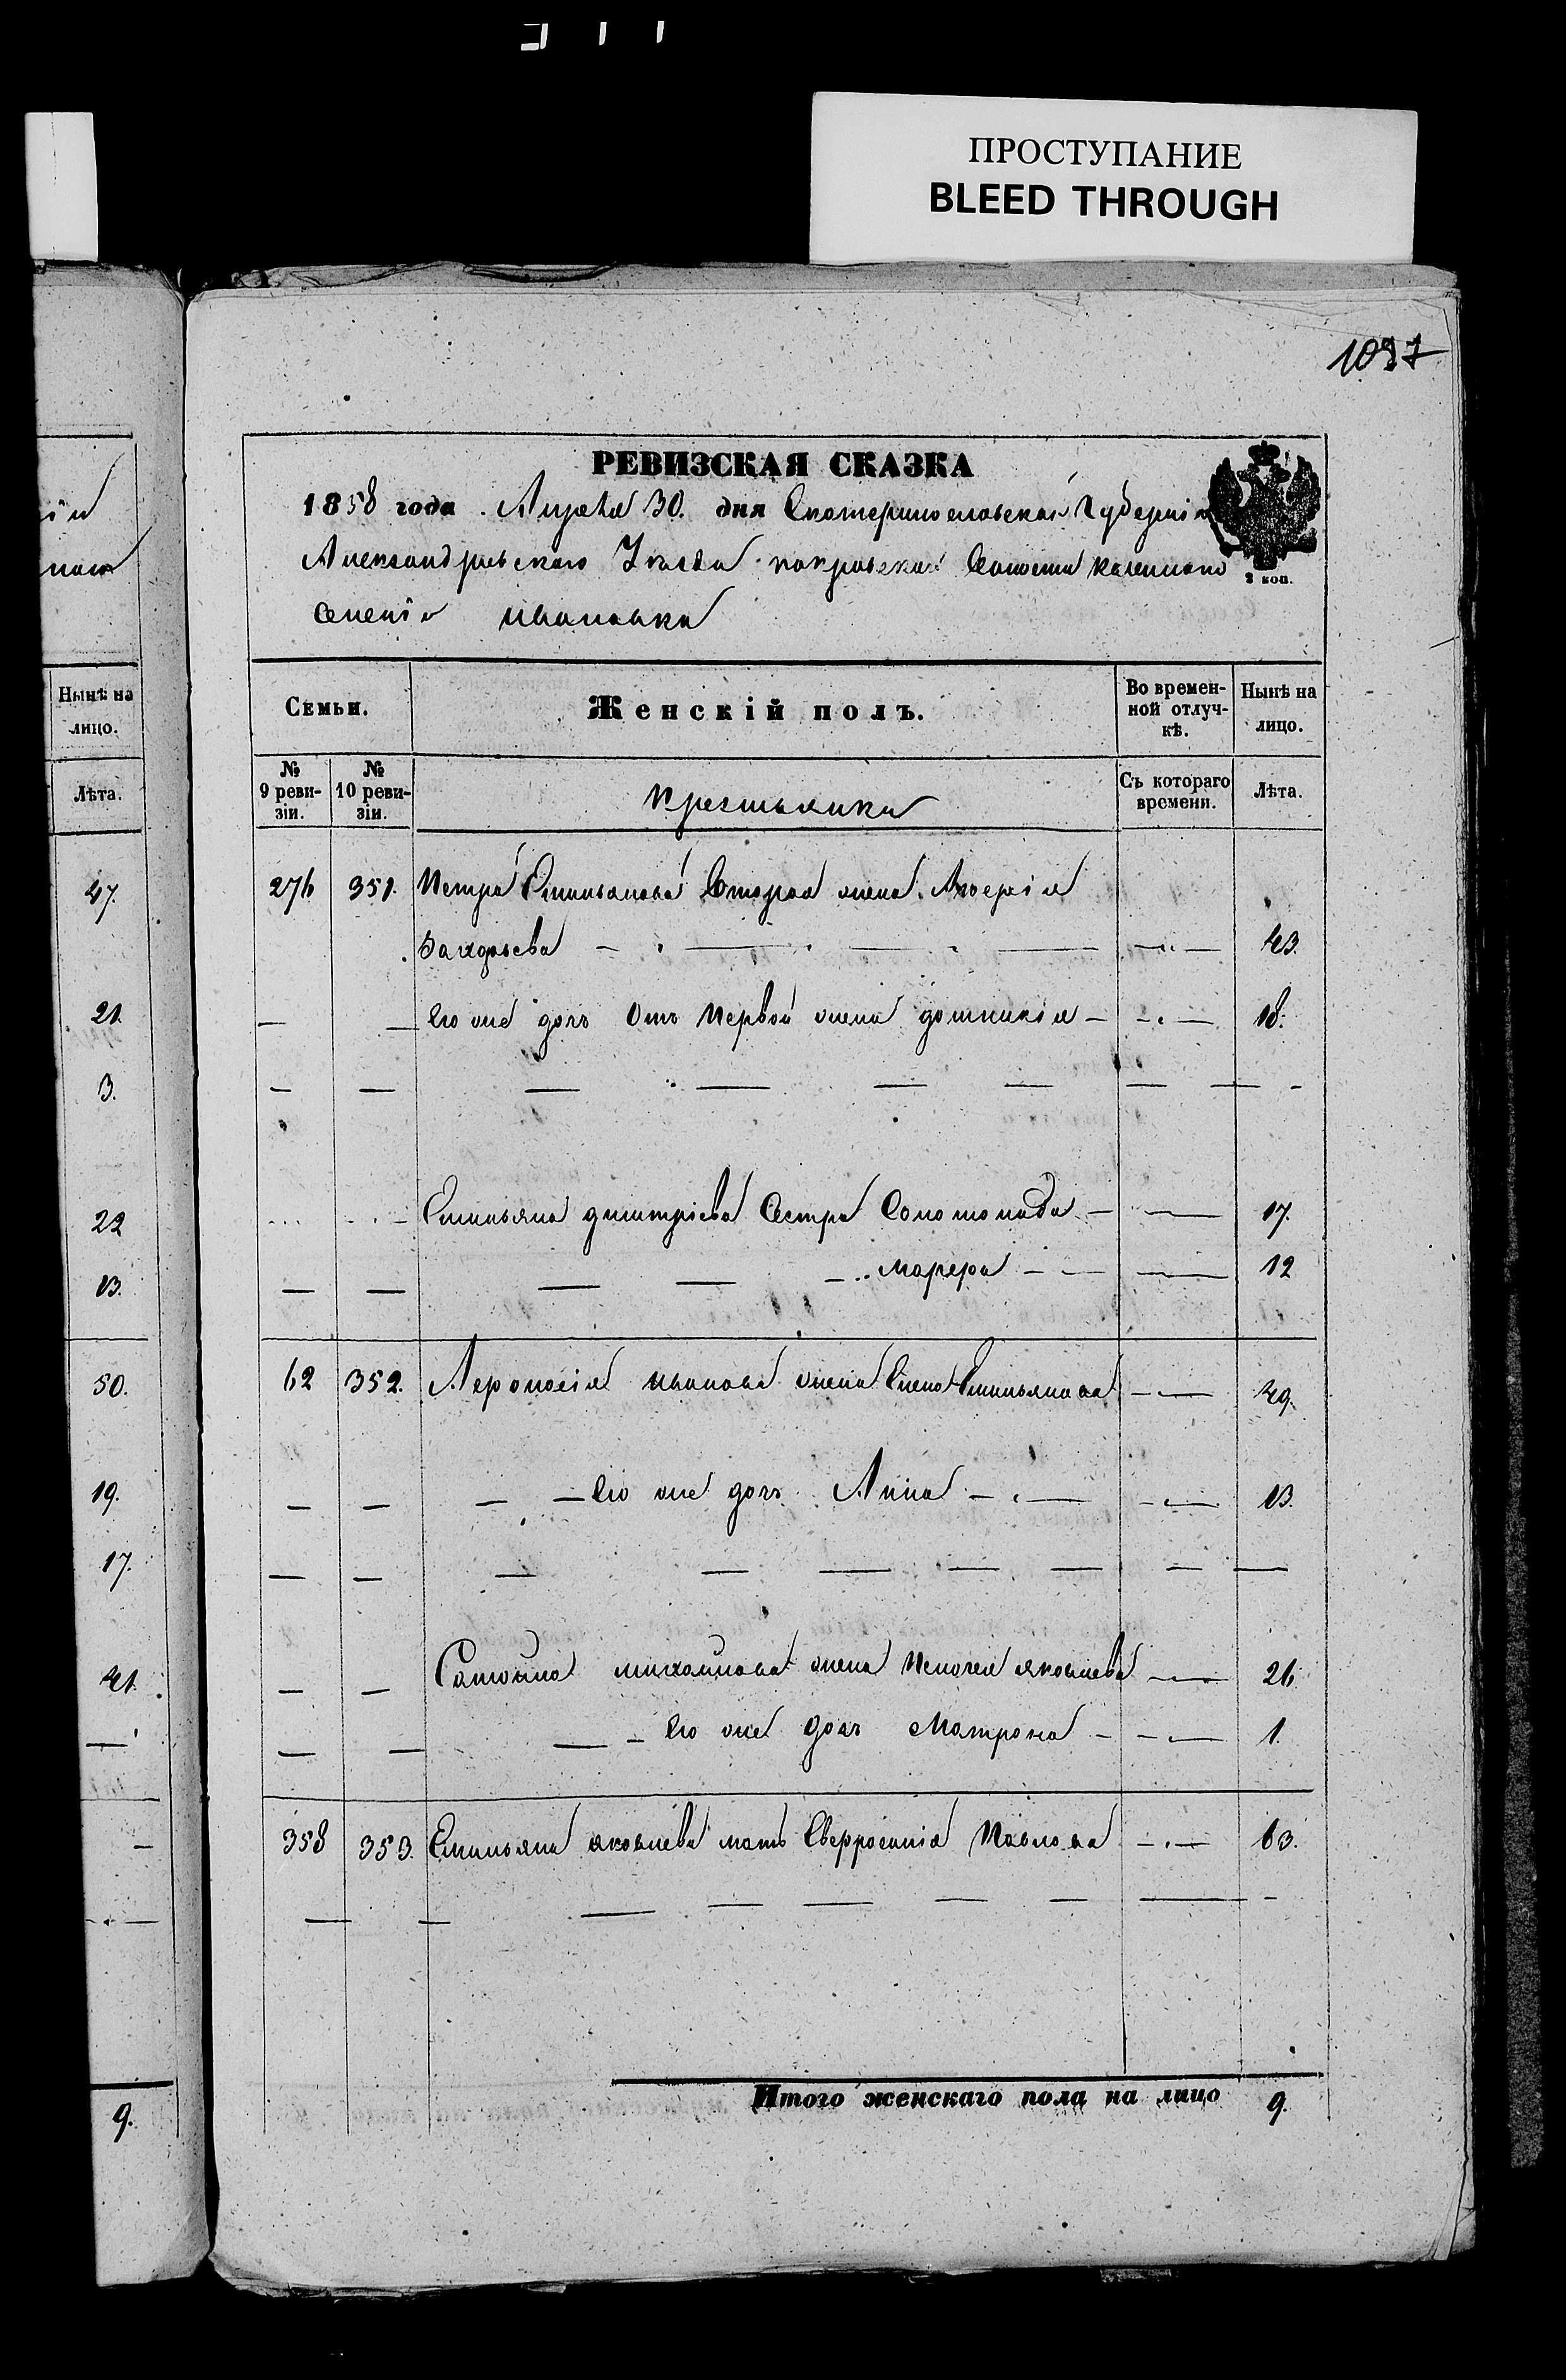 ПРОСТУПАНИЕ
BLEED THROUGH
1097
РЕВИЗСКАЯ СКАЗКА
1858 года Апреля 30. дня Екатеринославской Губерніи
Александровского Уезда покровской Волости казенного
2 коп.
Селенія Ивановки
Нынѣ на лицо.
Семьи.
Женскій полъ.
Во времен-
ной отлуч-
кѣ.
Нынѣ на
лицо.
Лѣта.
№
9 реви-
зіи.
№
10 реви-
зіи.
крестьянки
Съ котораго
времени.
Лѣта.
47.
276 351. Петра Емильянова Вторая жена
43.
21. Его же дочь Отъ Первой жены 18.
3.
22 Емильяна дмитріева Сестра Соломонида 17.
13. марфра 12
50. 62 352. Иванова жена Елена Емильянова 49.
19. Его же дочь Анна 13.
17.
41. михайлова жена Пелагея яковлева 26
Его же дочь Матрона 1.
358 353. Емильяна яковлева мать Евфросинія Павлова 63.
Итого женскаго пола на лицо 9.
9.